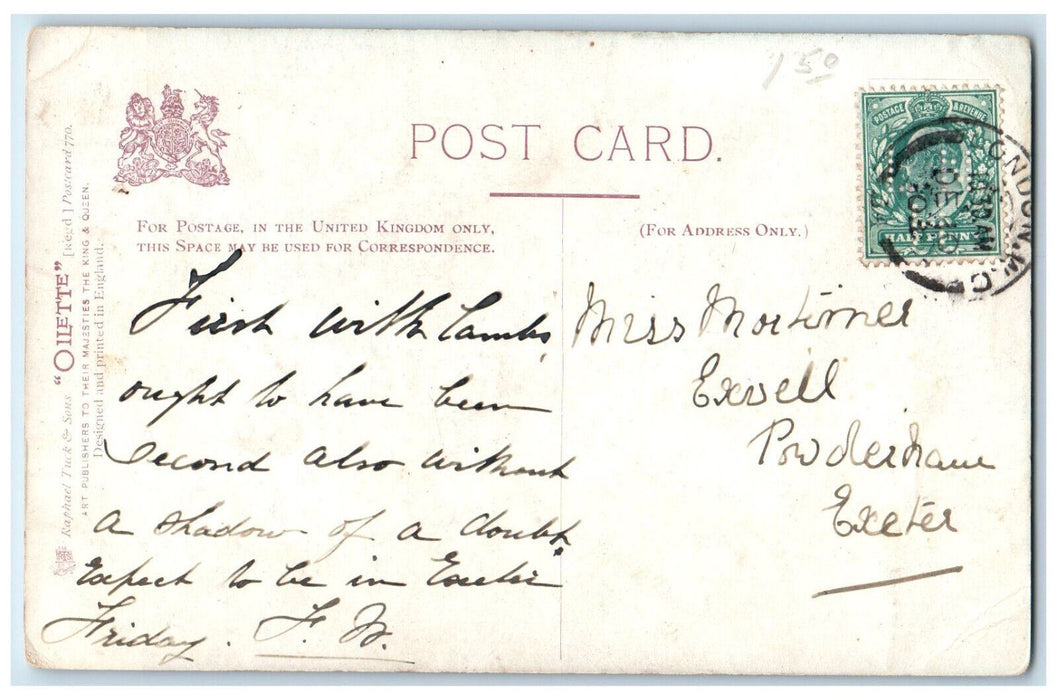 1 50
POST CARD.
FOR POSTAGE, IN THE UNITED KINGDOM ONLY,
THIS SPACE MAY BE USED FOR CORRESPONDENCE.
(FOR ADDRESS ONLY.)
POSTAGE & REVENUE
HALF PENNY
LONDON. W.C
DEC
Raphael Tuck & Sons "OILETTE" [Regd.] Postcard 770.
ART PUBLISHERS TO THEIR MAJESTIES THE KING & QUEEN.
Designed and printed in England.
First with lambs
ought to have been
second also without
a shadow of a doubt.
Expect to be in Exeter
Friday. F. M.
Miss Mortimer
Exwell
Powderham
Exeter